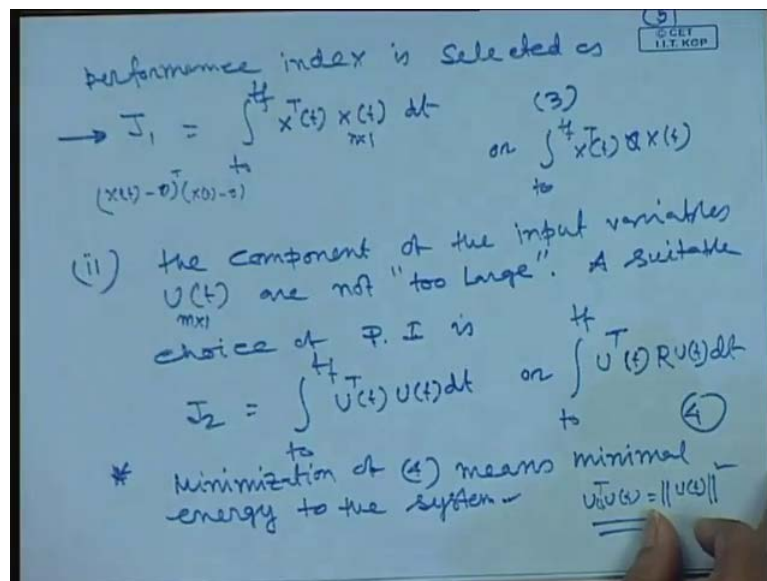 (5)
© CET
I.I.T. KGP
performance index is selected as
→ J₁ = ∫_{t0}^{tf} x^T(t) x(t) dt (3)
n×1
or ∫_{t0}^{tf} x^T(t) Q x(t)
(x(t)-0)^T (x(t)-0)
(ii) the component of the input variables
U(t) are not "too large". A suitable
m×1
choice of P. I is
J₂ = ∫_{t0}^{tf} U^T(t) U(t) dt or ∫_{t0}^{tf} U^T(t) R U(t) dt
(4)
* Minimization of (4) means minimal
energy to the system.
U^T(t) U(t) = ||U(t)||²